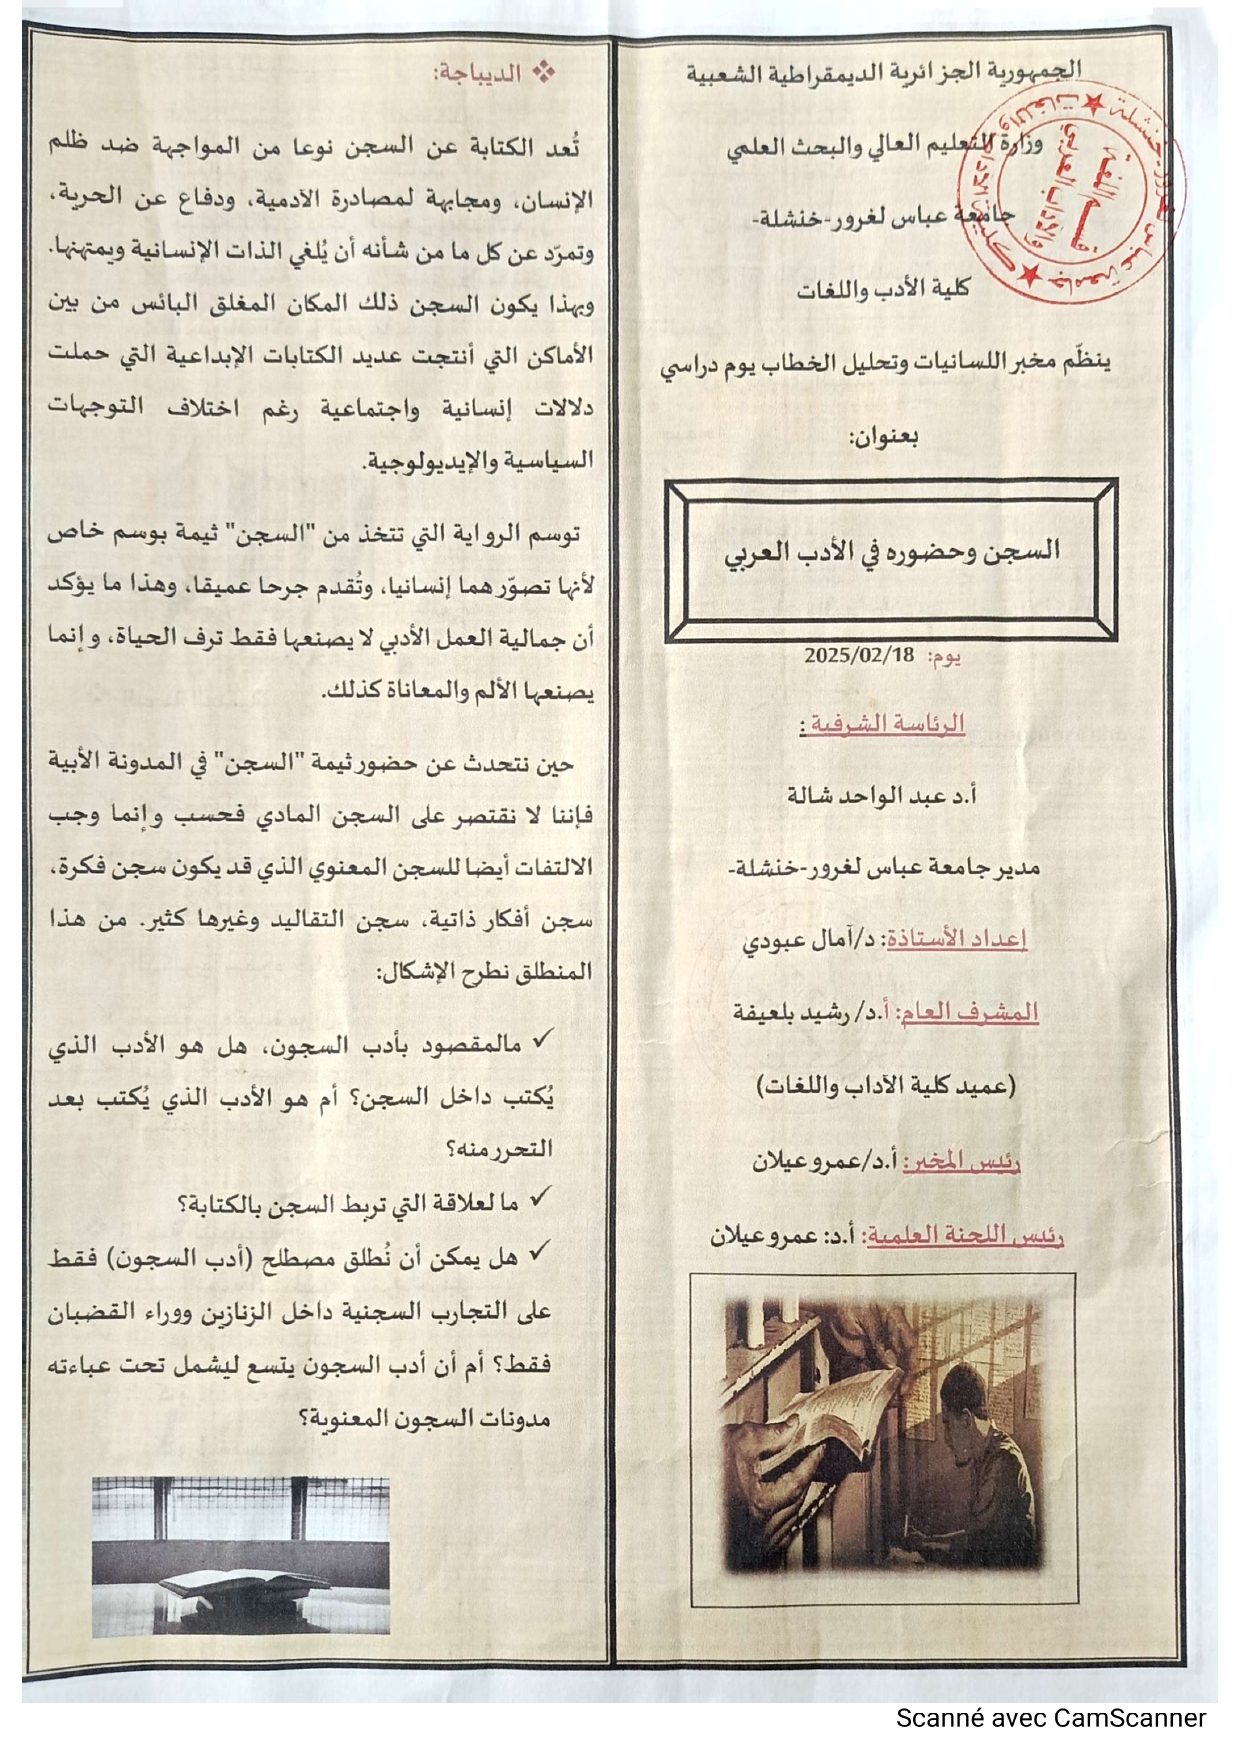 الجمهورية الجزائرية الديمقراطية الشعبية
وزارة التعليم العالي والبحث العلمي
جامعة عباس لغرور-خنشلة-
كلية الأدب واللغات
ينظّم مخبر اللسانيات وتحليل الخطاب يوم دراسي
بعنوان:
السجن وحضوره في الأدب العربي
يوم: 2025/02/18
الرئاسة الشرفية :
أ.د عبد الواحد شالة
مدير جامعة عباس لغرور-خنشلة-
إعداد الأستاذة: د/آمال عبودي
المشرف العام: أ.د/ رشيد بلعيفة
(عميد كلية الآداب واللغات)
رئيس المخبر: أ.د/عمرو عيلان
رئيس اللجنة العلمية: أ.د: عمرو عيلان
قسم اللغة
والأدب العربي
❖ الديباجة:
تُعد الكتابة عن السجن نوعا من المواجهة ضد ظلم
الإنسان، ومجابهة لمصادرة الآدمية، ودفاع عن الحرية،
وتمرّد عن كل ما من شأنه أن يُلغي الذات الإنسانية ويمتهنها.
وبهذا يكون السجن ذلك المكان المغلق البائس من بين
الأماكن التي أنتجت عديد الكتابات الإبداعية التي حملت
دلالات إنسانية واجتماعية رغم اختلاف التوجهات
السياسية والإيديولوجية.
توسم الرواية التي تتخذ من "السجن" ثيمة بوسم خاص
لأنها تصوّر هما إنسانيا، وتُقدم جرحا عميقا، وهذا ما يؤكد
أن جمالية العمل الأدبي لا يصنعها فقط ترف الحياة، وإنما
يصنعها الألم والمعاناة كذلك.
حين نتحدث عن حضور ثيمة "السجن" في المدونة الأبية
فإننا لا نقتصر على السجن المادي فحسب وإنما وجب
الالتفات أيضا للسجن المعنوي الذي قد يكون سجن فكرة،
سجن أفكار ذاتية، سجن التقاليد وغيرها كثير. من هذا
المنطلق نطرح الإشكال:
✓ مالمقصود بأدب السجون، هل هو الأدب الذي
يُكتب داخل السجن؟ أم هو الأدب الذي يُكتب بعد
التحرر منه؟
✓ ما لعلاقة التي تربط السجن بالكتابة؟
✓ هل يمكن أن نُطلق مصطلح (أدب السجون) فقط
على التجارب السجنية داخل الزنازين ووراء القضبان
فقط؟ أم أن أدب السجون يتسع ليشمل تحت عباءته
مدونات السجون المعنوية؟
Scanné avec CamScanner